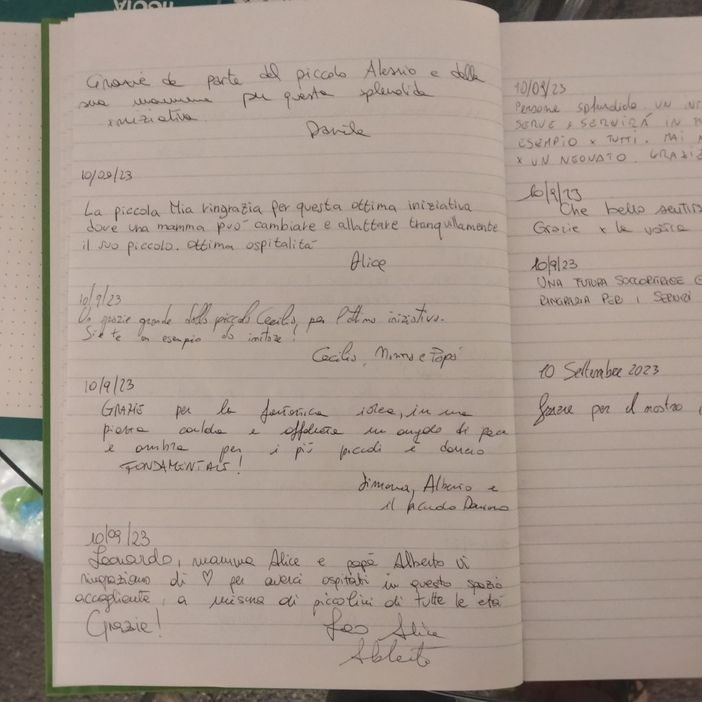 Grazie da parte del piccolo Alessio e dalla
sua mamma per questa splendida
iniziativa
Danila
10/09/23
La piccola Mia ringrazia per questa ottima iniziativa
dove una mamma può cambiare e allattare tranquillamente
il suo piccolo. Ottima ospitalità
Alice
10/9/23
Un grazie grande dalla piccola Cecilia, per l'ottima iniziativa.
Siete un esempio da imitare!
Cecilia, Mamma e Papà
10/9/23
GRAZIE per la fantastica idea, in una
piazza calda e affollata un angolo di pace
e ombra per i più piccoli è davvero
FONDAMENTALE!
Simona, Alberto e
il piccolo
10/09/23
Leonardo, mamma Alice e papà Alberto vi
ringraziano di ♡ per averci ospitati in questo spazio
accogliente, a misura di piccolini di tutte le età
Grazie!
Leo Alice
Alberto
10/09/23
Persone splendide. UN
SERVE e SERVIRÀ IN
ESEMPIO x TUTTI. MAI
x UN NEONATO. GRAZIE
10/9/23
Che bello
Grazie x la vostra
10/9/23
UNA FUTURA SOCCORRITRICE
RINGRAZIA PER I SERVIZI
10 Settembre 2023
Grazie per il nostro